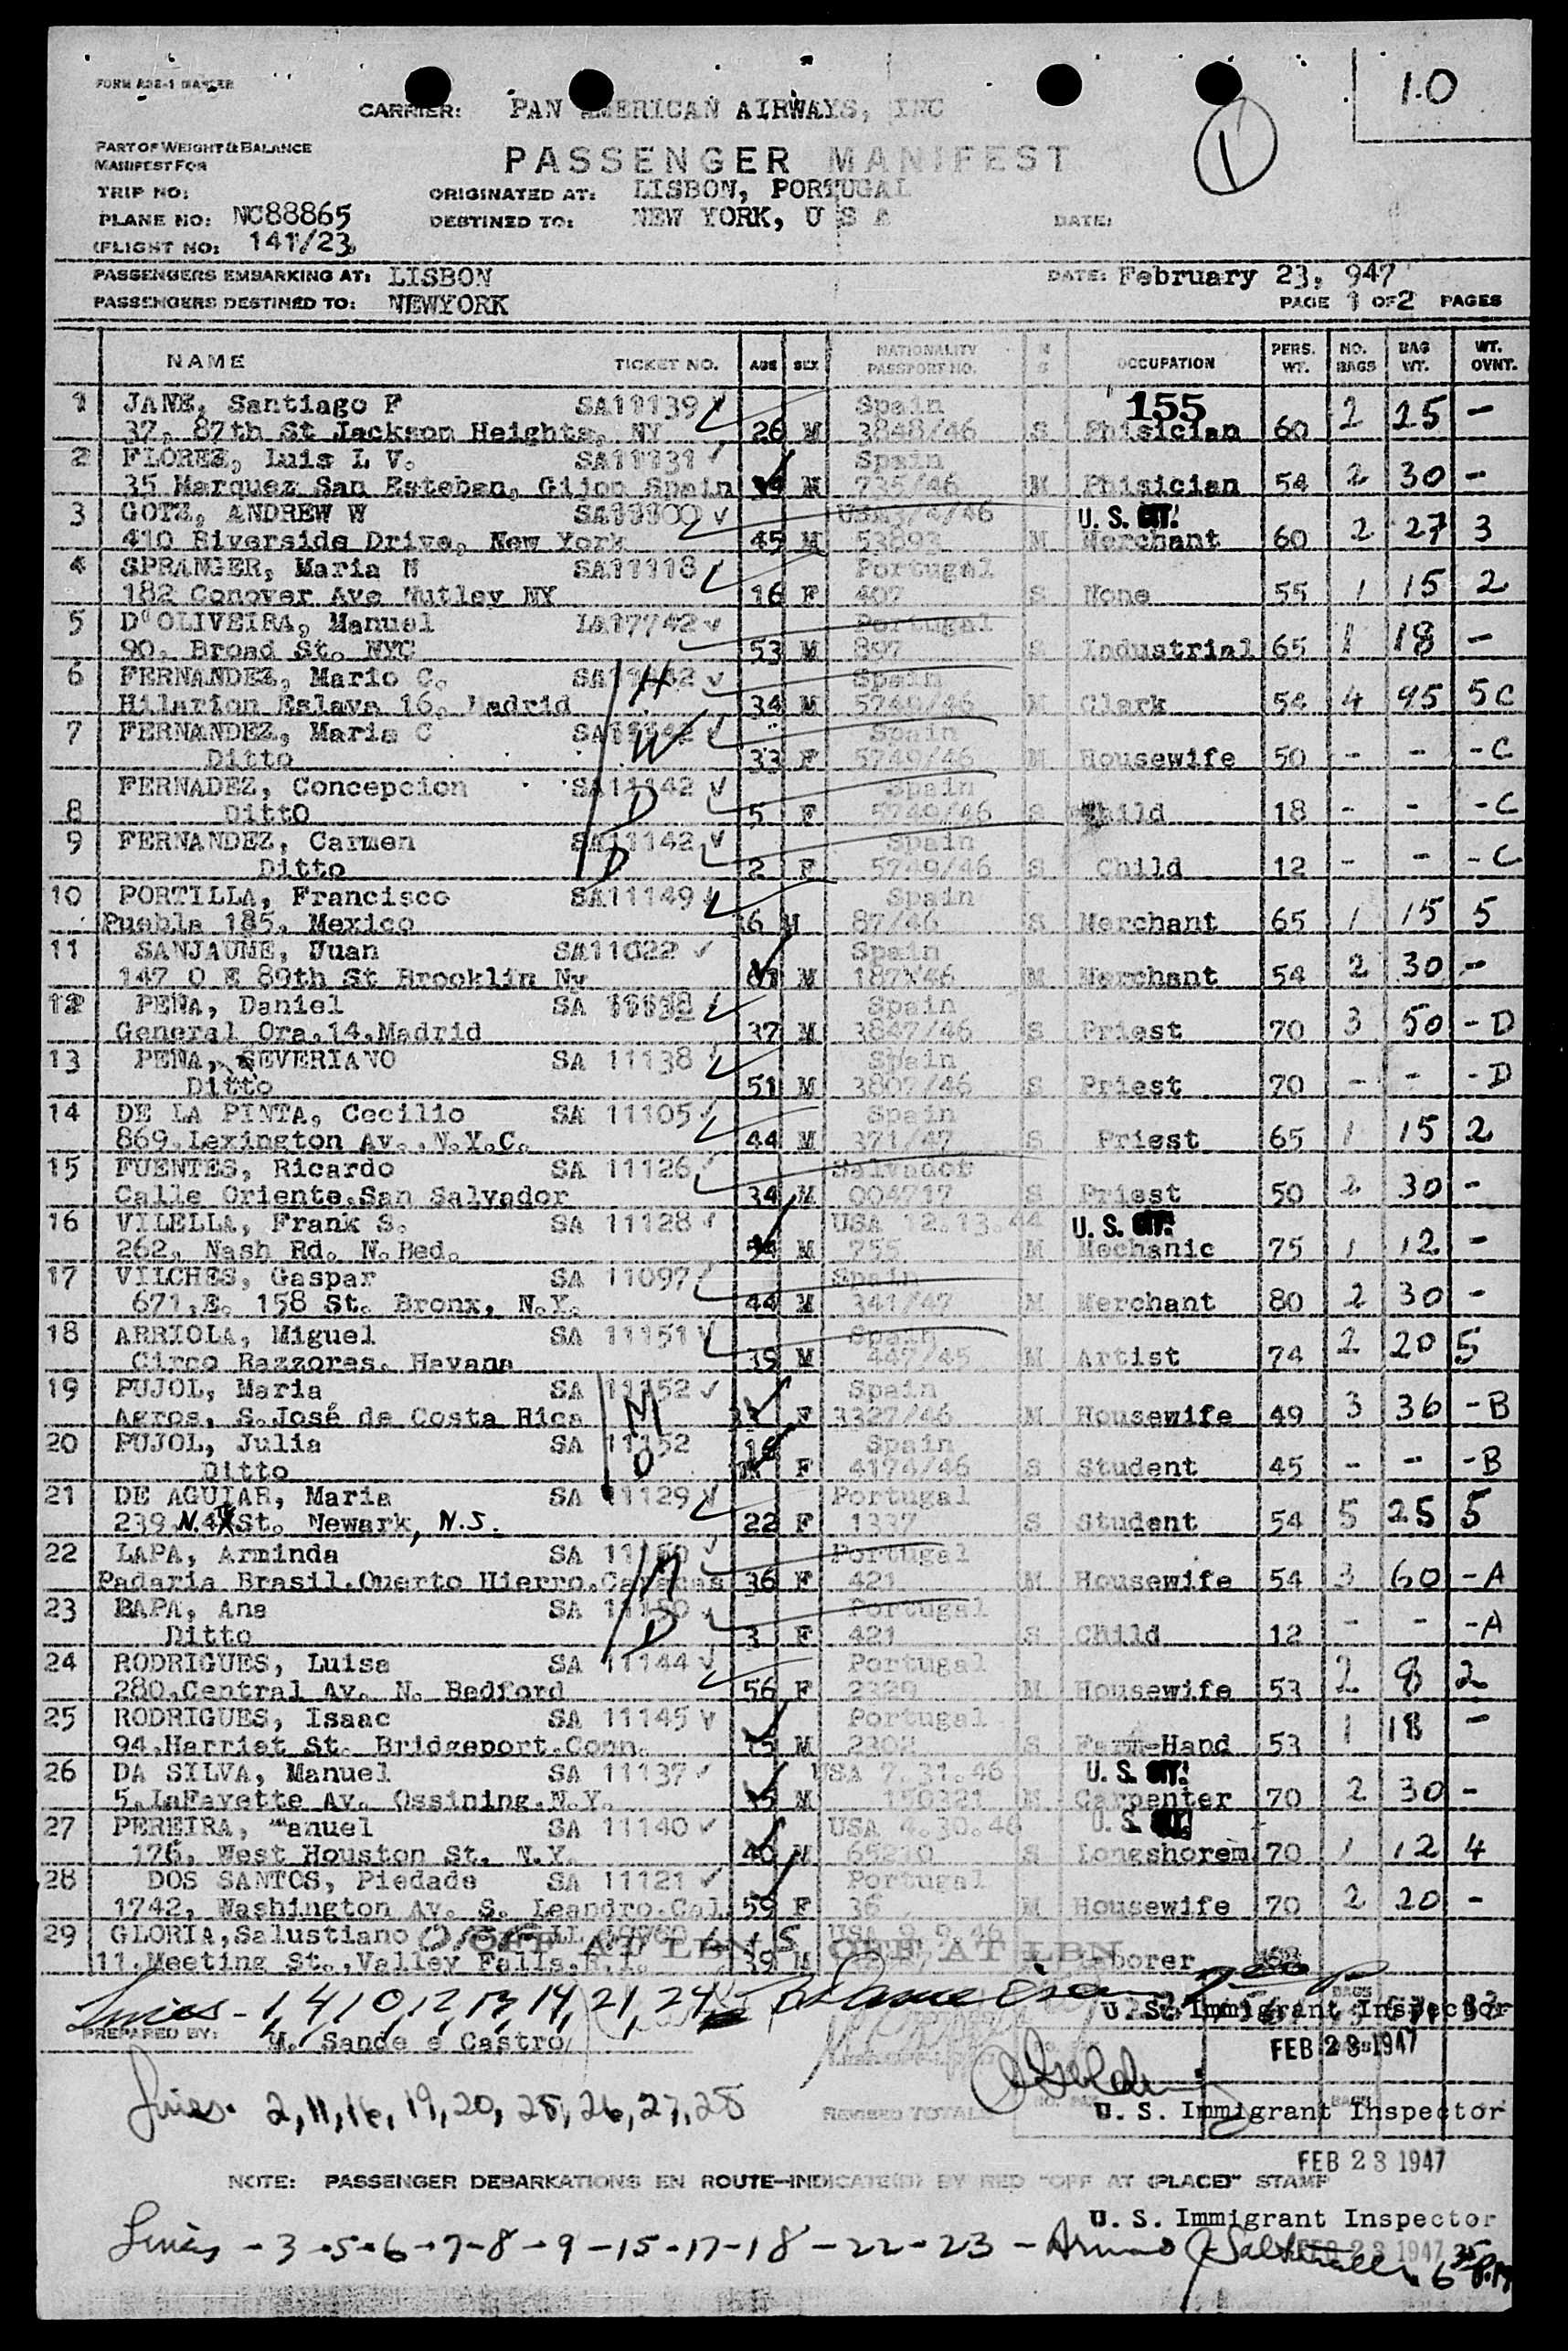 1.0
CARRIER: PAN AMERICAN AIRWAYS, INC
1
PART OF WEIGHT & BALANCE
MANIFEST FOR
PASSENGER MANIFEST
TRIP NO: ORIGINATED AT: LISBON, PORTUGAL
PLANE NO: NC88865 DESTINED TO: NEW YORK, U S A DATE:
FLIGHT NO: 141/23
PASSENGERS EMBARKING AT: LISBON DATE: February 23, 947
PASSENGERS DESTINED TO: NEWYORK PAGE 1 OF 2 PAGES
NAME TICKET NO. AGE SEX NATIONALITY PASSPORT NO. M S OCCUPATION PERS. WT. NO. BAGS BAG WT. WT. OVNT.
1 JANE, Santiago F SA11139 Spain 155
37, 87th St Jackson Heights, NY 26 M 3848/46 S Phisician 60 2 25 -
2 FLOREZ, Luis L V. SA11131 Spain
35 Marquez San Esteban, Gijon Spain M 735/46 M Phisician 54 2 30 -
3 GOTZ, ANDREW W USA3/4/46 U. S. CIT.
410 Riverside Drive, New York 45 M 53893 M Merchant 60 2 27 3
4 SPRANGER, Maria N SA11118 Portugal
182 Conover Ave Nutley NY 16 F 407 S None 55 1 15 2
5 D'OLIVEIRA, Manuel IA17742 Portugal
90, Broad St. NYC 53 M 897 S Industrial 65 1 18 -
6 FERNANDEZ, Mario C. H Spain
Hilarion Eslava 16, Madrid 34 M 5749/46 M Clerk 54 4 95 5C
7 FERNANDEZ, Maria C SA11142 W Spain
Ditto 33 F 5749/46 M Housewife 50 - - -C
FERNADEZ, Concepcion SA11142 Spain
8 DittO D 5 F 5749/46 S Child 18 - - -C
9 FERNANDEZ, Carmen SA11142 Spain
Ditto D 2 F 5749/46 S Child 12 - - -C
10 PORTILLA, Francisco SA11149 Spain
Puebla 185, Mexico 36 M 87/46 S Merchant 65 1 15 5
11 SANJAUME, Juan SA11022 Spain
147 O E 89th St Brooklin Ny M M Merchant 54 2 30 -
12 PEÑA, Daniel SA 11138 Spain
General Ora.14.Madrid 37 M 3847/46 S Priest 70 3 50 -D
13 PEÑA, SEVERIANO SA 11138 Spain
Ditto 51 M 3807/46 S Priest 70 - - -D
14 DE LA PINTA, Cecilio SA 11105 Spain
869.Lexington Av..N.Y.C. 44 M 371/47 S Priest 65 1 15 2
15 FUENTES, Ricardo SA 11126 Salvador
Calle Oriente.San Salvador 34 M 004717 S Priest 50 2 30 -
16 VILELLA, Frank S. SA 11128 USA 12.13.44 U. S. CIT.
262, Nash Rd. N.Bed. M 755 M Mechanic 75 1 12 -
17 VILCHES, Gaspar SA 11097 Spain
671.E. 158 St. Bronx, N.Y. 44 M 341/47 M Merchant 80 2 30 -
18 ARRIOLA, Miguel SA 11151 Spain
Circo Razzores. Havana 35 M 447/45 M Artist 74 2 20 5
19 PUJOL, Maria SA 11152 M Spain
Agros, S.José de Costa Rica F 3327/46 M Housewife 49 3 36 -B
20 PUJOL, Julia SA 11152 Spain
Ditto D F 4174/46 S Student 45 - - -B
21 DE AGUIAR, Maria SA 11129 Portugal
239 N. 4 St. Newark, N.J. 22 F 1337 S Student 54 5 25 5
22 LAPA, Arminda SA 11150 M Portugal
Padaria Brasil.Querto Hierro.Caracas 36 F 421 M Housewife 54 3 60 -A
23 BAPA, Ana SA 11150 Portugal
Ditto D 3 F 421 S Child 12 - - -A
24 RODRIGUES, Luisa SA 11144 Portugal
280.Central Av. N. Bedford 56 F 2329 M Housewife 53 2 8 2
25 RODRIGUES, Isaac SA 11145 Portugal
94.Harriet St. Bridgeport.Conn. M 2302 S Farm-Hand 53 1 18 -
26 DA SILVA, Manuel SA 11137 USA 7.31.46 U. S. CIT.
5.LaFayette Av. Ossining.N.Y. M 150321 M Carpenter 70 2 30 -
27 PEREIRA, Manuel SA 11140 USA 4.30.46 U. S. CIT.
176, West Houston St. N.Y. 40 M 65210 S Longshorem 70 1 12 4
28 DOS SANTOS, Piedade SA 11121 Portugal
1742, Washington Av. S. Leandro.Cal. 59 F 36 M Housewife 70 2 20 -
29 GLORIA,Salustiano OFF AT LBN OFF AT LBN
11.Meeting St.,Valley Falls.R.I. 39 M Laborer
Lines - 1, 4, 10, 12, 13, 14, 21, 24
U. S. Immigrant Inspector
PREPARED BY: M. Sande e Castro
FEB 23 1947
Lines. 2, 11, 16, 19, 20, 25, 26, 27, 28
REVISED TOTALS U. S. Immigrant Inspector
FEB 23 1947
NOTE: PASSENGER DEBARKATIONS EN ROUTE—INDICATE(D) BY RED "OFF AT (PLACE)" STAMP
U. S. Immigrant Inspector
Lines - 3 - 5 - 6 - 7 - 8 - 9 - 15 - 17 - 18 - 22 - 23 -
FEB 23 1947